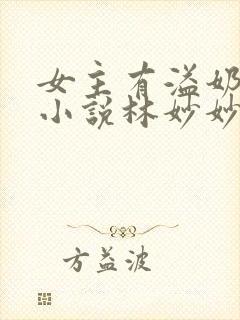 女主有溢奶
小说林妙妙
方益波